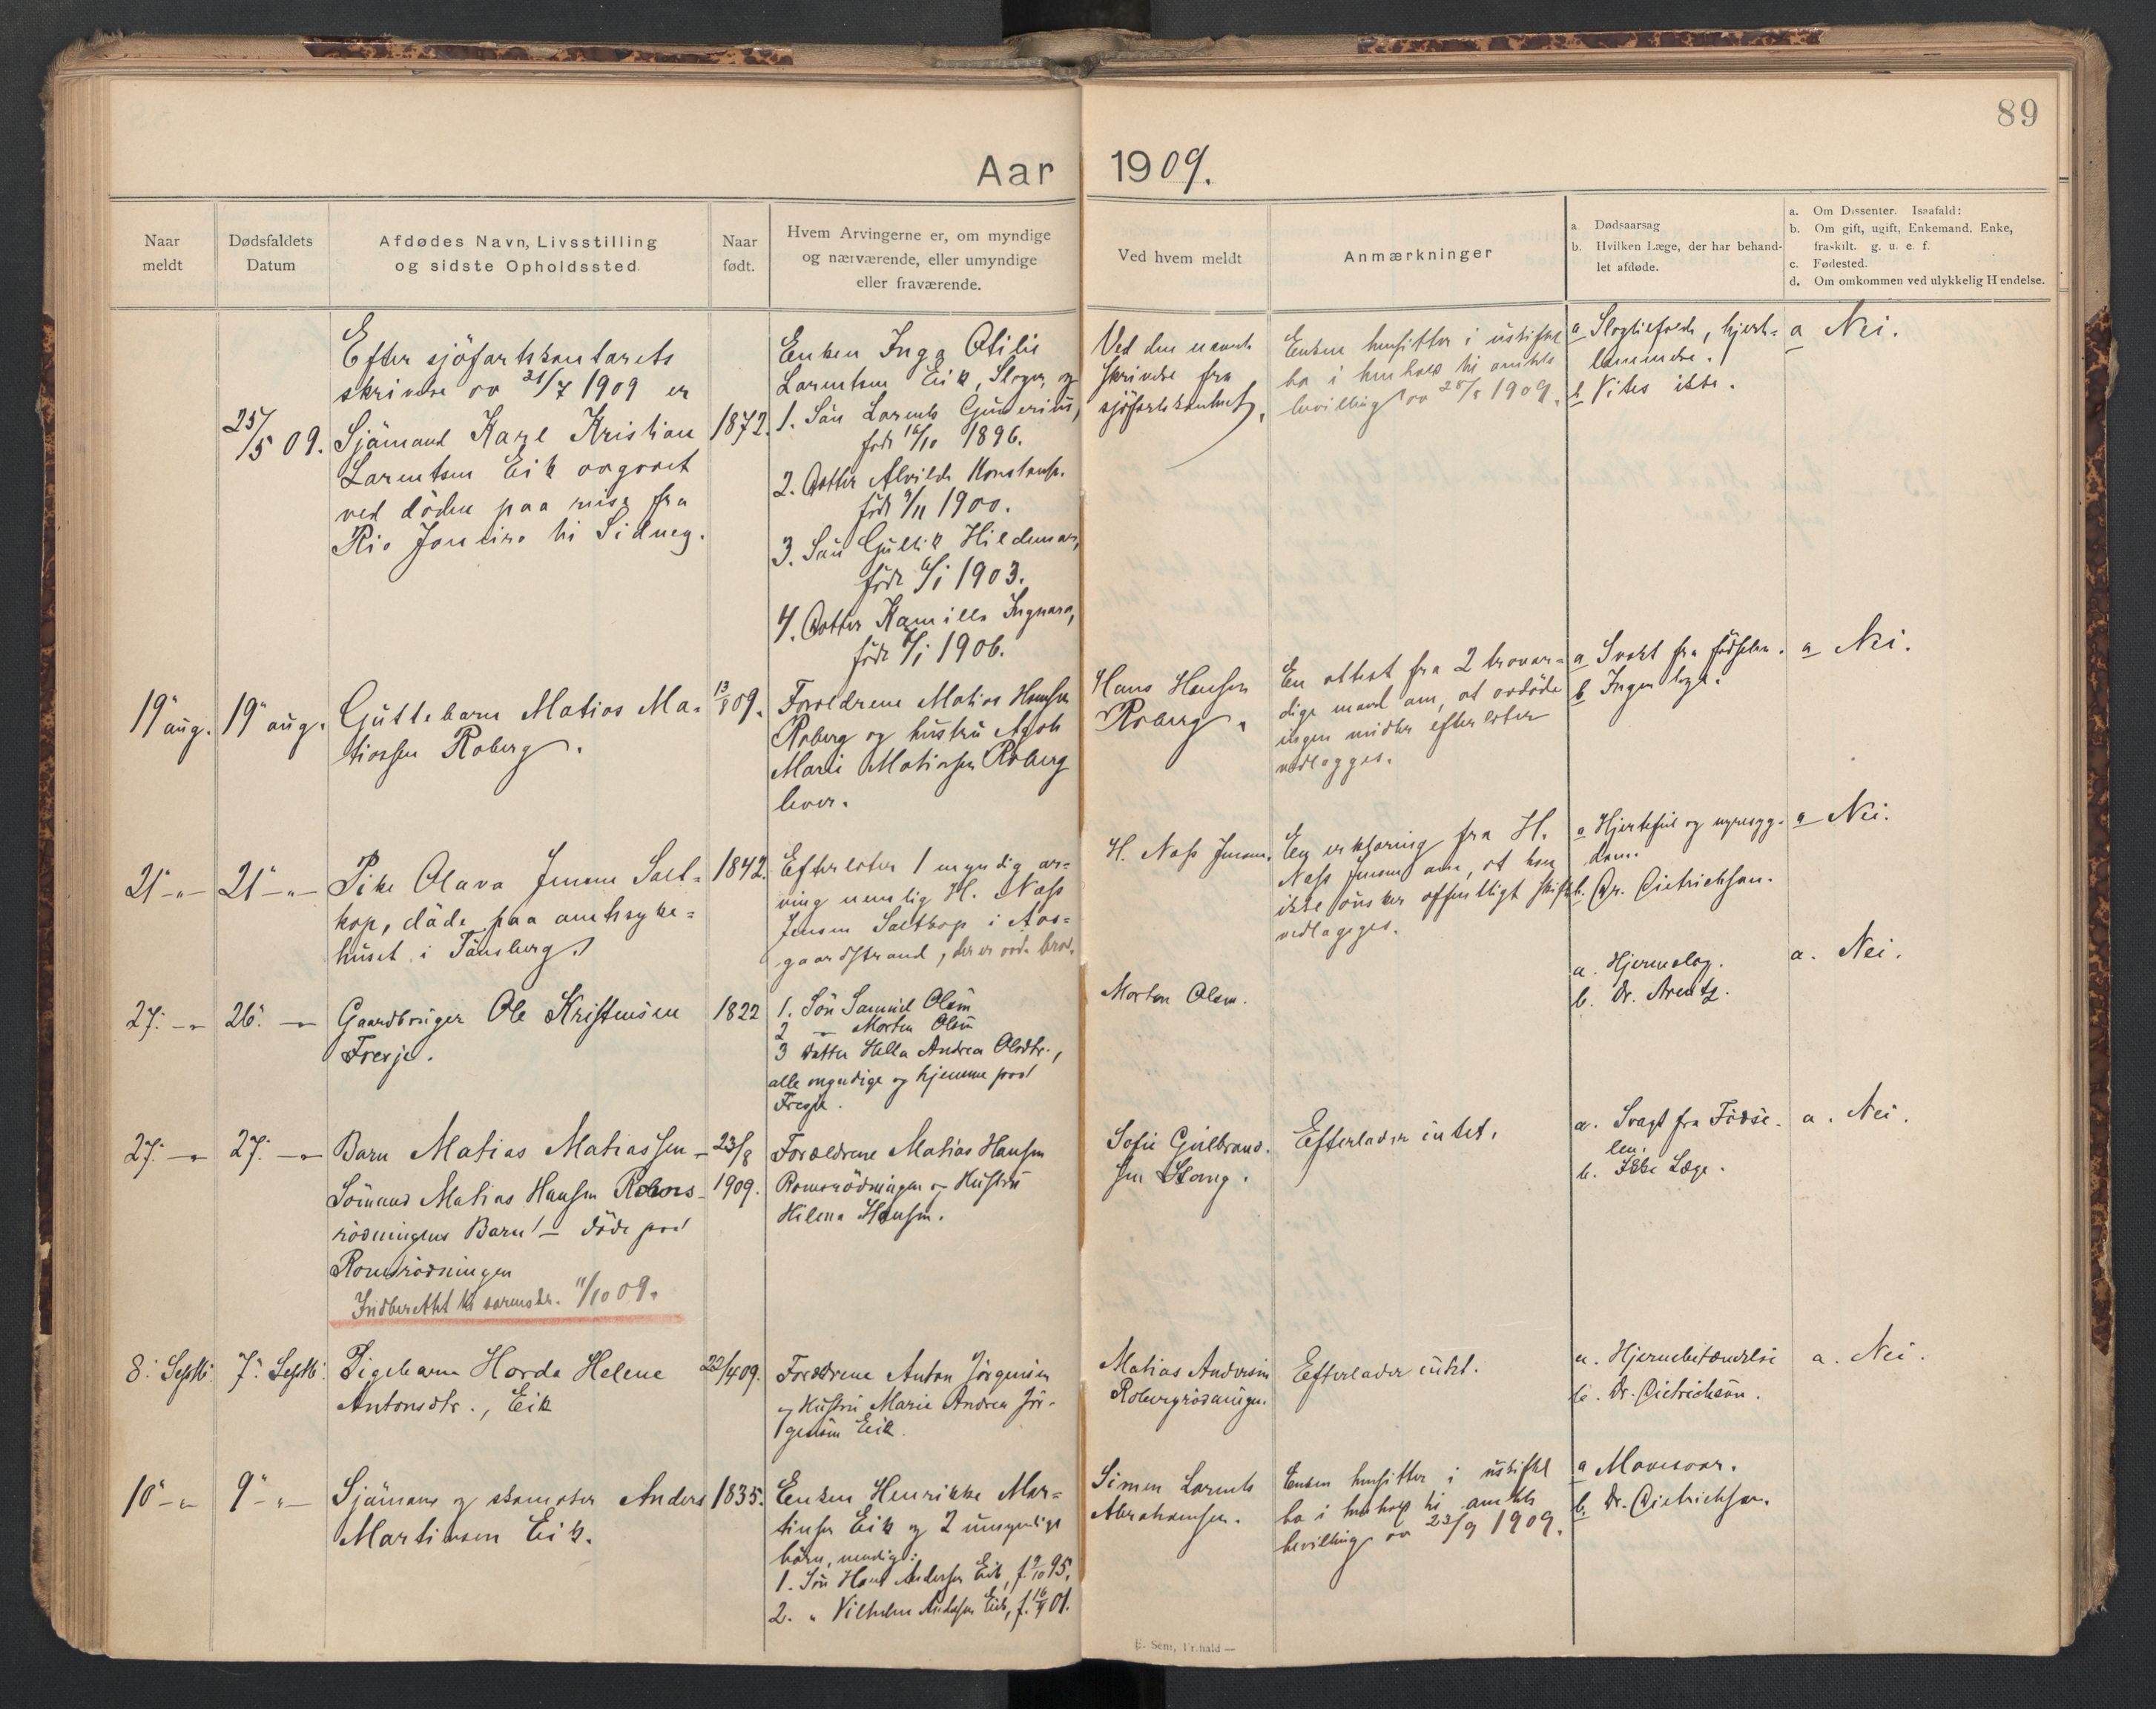 89
Aar 1909.
Naar meldt
Dødsfaldets Datum
Afdødes Navn, Livsstilling og sidste Opholdssted
Naar født.
Hvem Arvingerne er, om myndige og nærværende, eller umyndige eller fraværende.
Ved hvem meldt
Anmærkninger
a. Dødsaarsag
b. Hvilken Læge, der har behandlet afdøde.
a. Om Dissenter. Isaafald:
b. Om gift, ugift, Enkemand, Enke, fraskilt. g. u. e. f.
c. Fødested.
d. Om omkommen ved ulykkelig Hendelse.
25/5 09.
Efter sjöfartskontorets
skrivelse av 21/7 1909 er
Sjömand Karl Kristian
Larentsen Eik avgaaet
ved döden paa reise fra
Rio Janeiro til Sidney.
1872.
Enken Inga Otilie
Larentsen Eik, Slagen, og
1. Sön Larents Gunerius,
född 16/10 1896.
2. Datter Alvilde Konstanse
född 9/11 1900.
3. Sön Gullik Hildemar,
född 6/1 1903.
4. Datter Kamilla Ingvara,
född /1 1906.
Ved den nævnte
skrivelse fra
sjöfartskontoret.
Enken hensitter i uskiftet
bo i henhold til amtets
bevilling av 28/8 1909.
a hjerte-
lammelse.
b Vites ikke.
a Nei.
19 aug.
19 aug.
Guttebarn Matias Ma-
tiassen Roberg.
13/8 09.
Foreldrene Matias Hansen
Roberg og hustru Agate
Marie Matiassen Roberg
lever.
Hans Hansen
Roberg.
En attest fra 2 trovær-
dige mænd om, at avdöde
ingen midler efterlater
vedlægges.
a Svakt fra födselen.
b Ingen læge.
a Nei.
21 -"-
21 -"-
Pike Olava Jensen Salt-
kop, döde paa amtssyke-
huset i Tönsberg.
1842.
Efterlater 1 myndig ar-
ving nemlig H. Nass
Jensen Saltkop i Aas-
gaardstrand, der er avd. bror.
H. Nass Jensen.
En erklæring fra H.
Nass Jensen om, at han
ikke önsker offentligt skifte
vedlægges.
a Hjertefeil og nyresyg-
dom.
b. Dr. Dietrichson.
a Nei.
27. -"-
26. -"-
Gaardbruger Ole Kristensen
Freije.
1822
1. Sön Samuel Olsen
2 -"- Morten Olsen
3 Datter Hella Andrea Olsdtr.,
alle myndige og hjemme paa
Freije.
Morten Olsen.
a. Hjerneslag.
b. Dr. Arentz.
a. Nei.
27. -"-
27. -"-
Barn Matias Matiassen -
Sömand Matias Hansen Roms-
rödningens Barn! - döde paa
Romsrödningen
Indberettet til sorenskr. 11/10 09.
23/8
1909.
Forældrene Matias Hansen
Romsrödningen og Hustru
Helena Hansen.
Sofie Gulbrand-
sen Stang.
Efterlader intet.
a. Svagt fra Födse-
len.
b. Ikke Læge.
a. Nei.
8. Septb.
7. Septb.
Pigebarn Horda Helene
Antonsdtr., Eik
22/4 09.
Forældrene Anton Jörgensen
og Hustru Marie Andrea Jör-
gensen Eik.
Matias Andersen
Robergrödningen.
Efterlader intet.
a. Hjernebetændelse
b. Dr. Dietrichson.
a. Nei.
10 -"-
9 -"-
Sjömand og skomaker Anders
Martinsen Eik.
1835.
Enken Henrikke Mar-
tinsen Eik og 2 umyndige
börn, nemlig:
1. Sön Hans Andersen Eik, f. 9/10 95.
2. " Vilhelm Andersen Eik, f. 16/4 01.
Simen Larents
Abrahamsen.
Enken hensitter i uskiftet
bo i henhold til amtets
bevilling av 23/9 1909.
a Mavesaar.
b. Dr. Dietrichson.
E. Sem, Fr.hald —